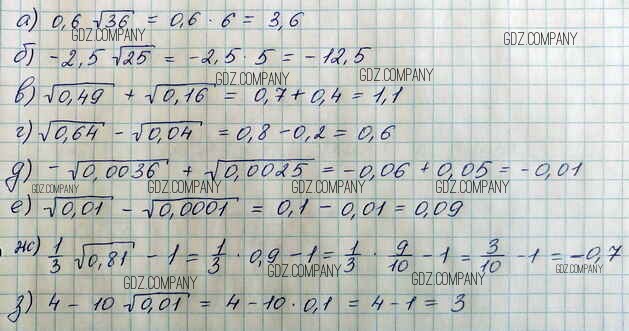 а) 0,6 √36 = 0,6 · 6 = 3,6
GDZ.COMPANY GDZ.COMPANY
б) -2,5 √25 = -2,5 · 5 = -12,5
GDZ.COMPANY GDZ.COMPANY
в) √0,49 + √0,16 = 0,7 + 0,4 = 1,1
GDZ.COMPANY
г) √0,64 - √0,04 = 0,8 - 0,2 = 0,6
д) -√0,0036 + √0,0025 = -0,06 + 0,05 = -0,01
GDZ.COMPANY GDZ.COMPANY GDZ.COMPANY GDZ.COMPANY
е) √0,01 - √0,0001 = 0,1 - 0,01 = 0,09
GDZ.COMPANY
ж) 1/3 √0,81 - 1 = 1/3 · 0,9 - 1 = 1/3 · 9/10 - 1 = 3/10 - 1 = -0,7
GDZ.COMPANY GDZ.COMPANY GDZ.COMPANY GDZ.COMPANY
з) 4 - 10 √0,01 = 4 - 10 · 0,1 = 4 - 1 = 3
GDZ.COMPANY